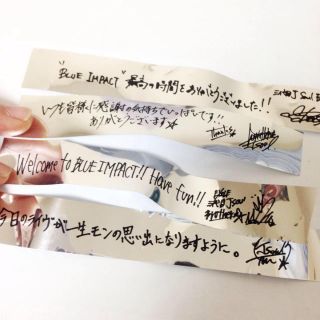 "BLUE IMPACT" 最高の時間をありがとうございました!!
三代目 J Soul
いつも皆様に感謝の気持ちでいっぱいです!!
ありがとうございます☆
Thanks
Welcome to BLUE IMPACT!! Have fun!!
EXILE
三代目 J Soul
Brothers
今日のライヴが一生モンの思い出になりますように。
J Soul